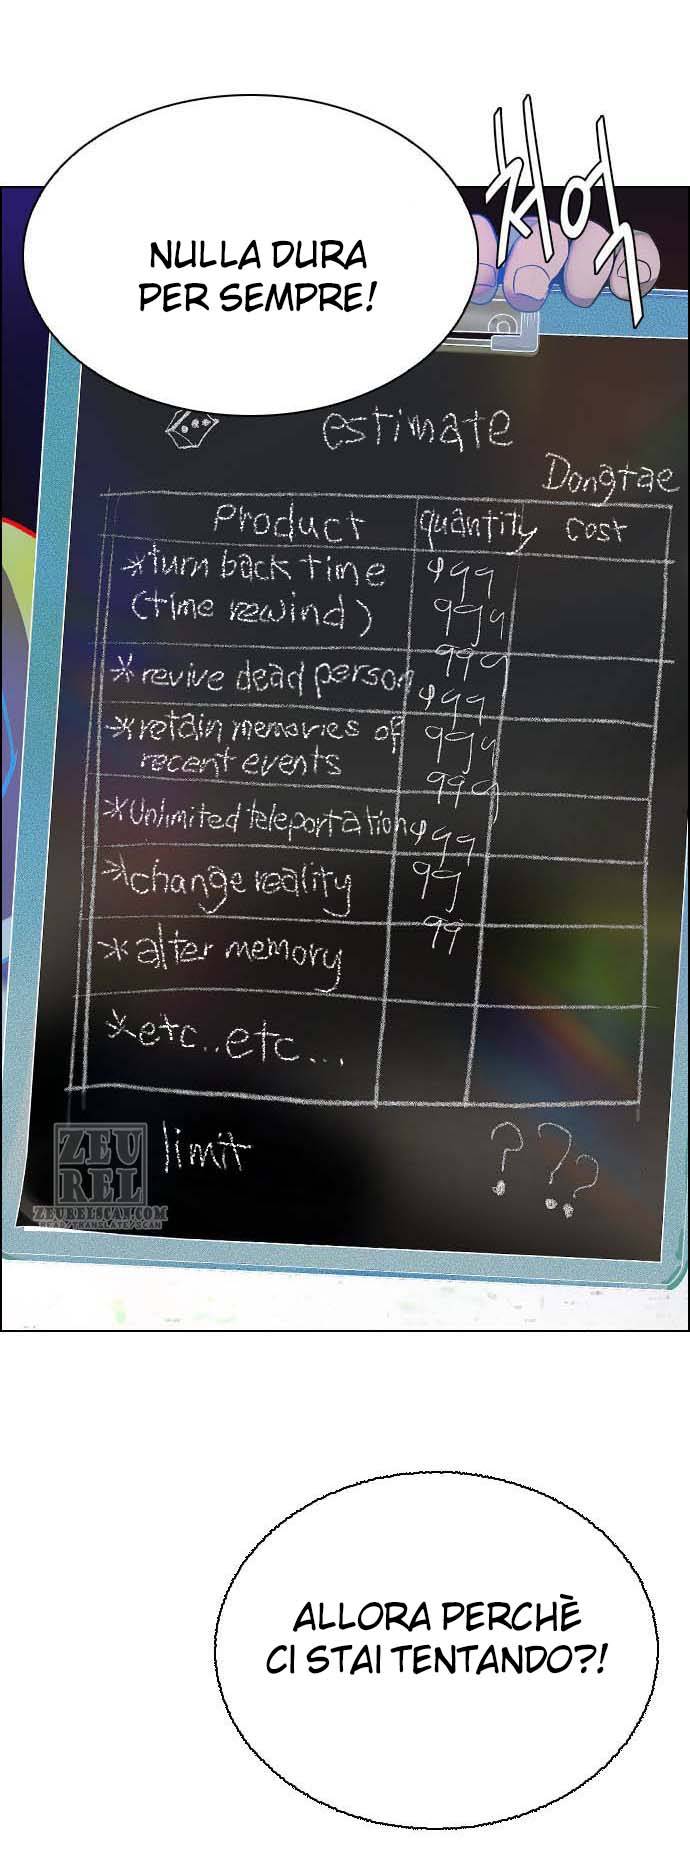 NULLA DURA
PER SEMPRE!
estimate
Dongtae
Product quantity cost
*turn back time 999
(time rewind) 999
999
*revive dead person 999
*retain memories of 999
recent events 999
*Unlimited teleportation 999
*change reality 99
99
*alter memory
*etc..etc...
limit ???
ZEU
REL
ZEURELSCAN.COM
READ/TRANSLATE/SCAN
ALLORA PERCHÈ
CI STAI TENTANDO?!